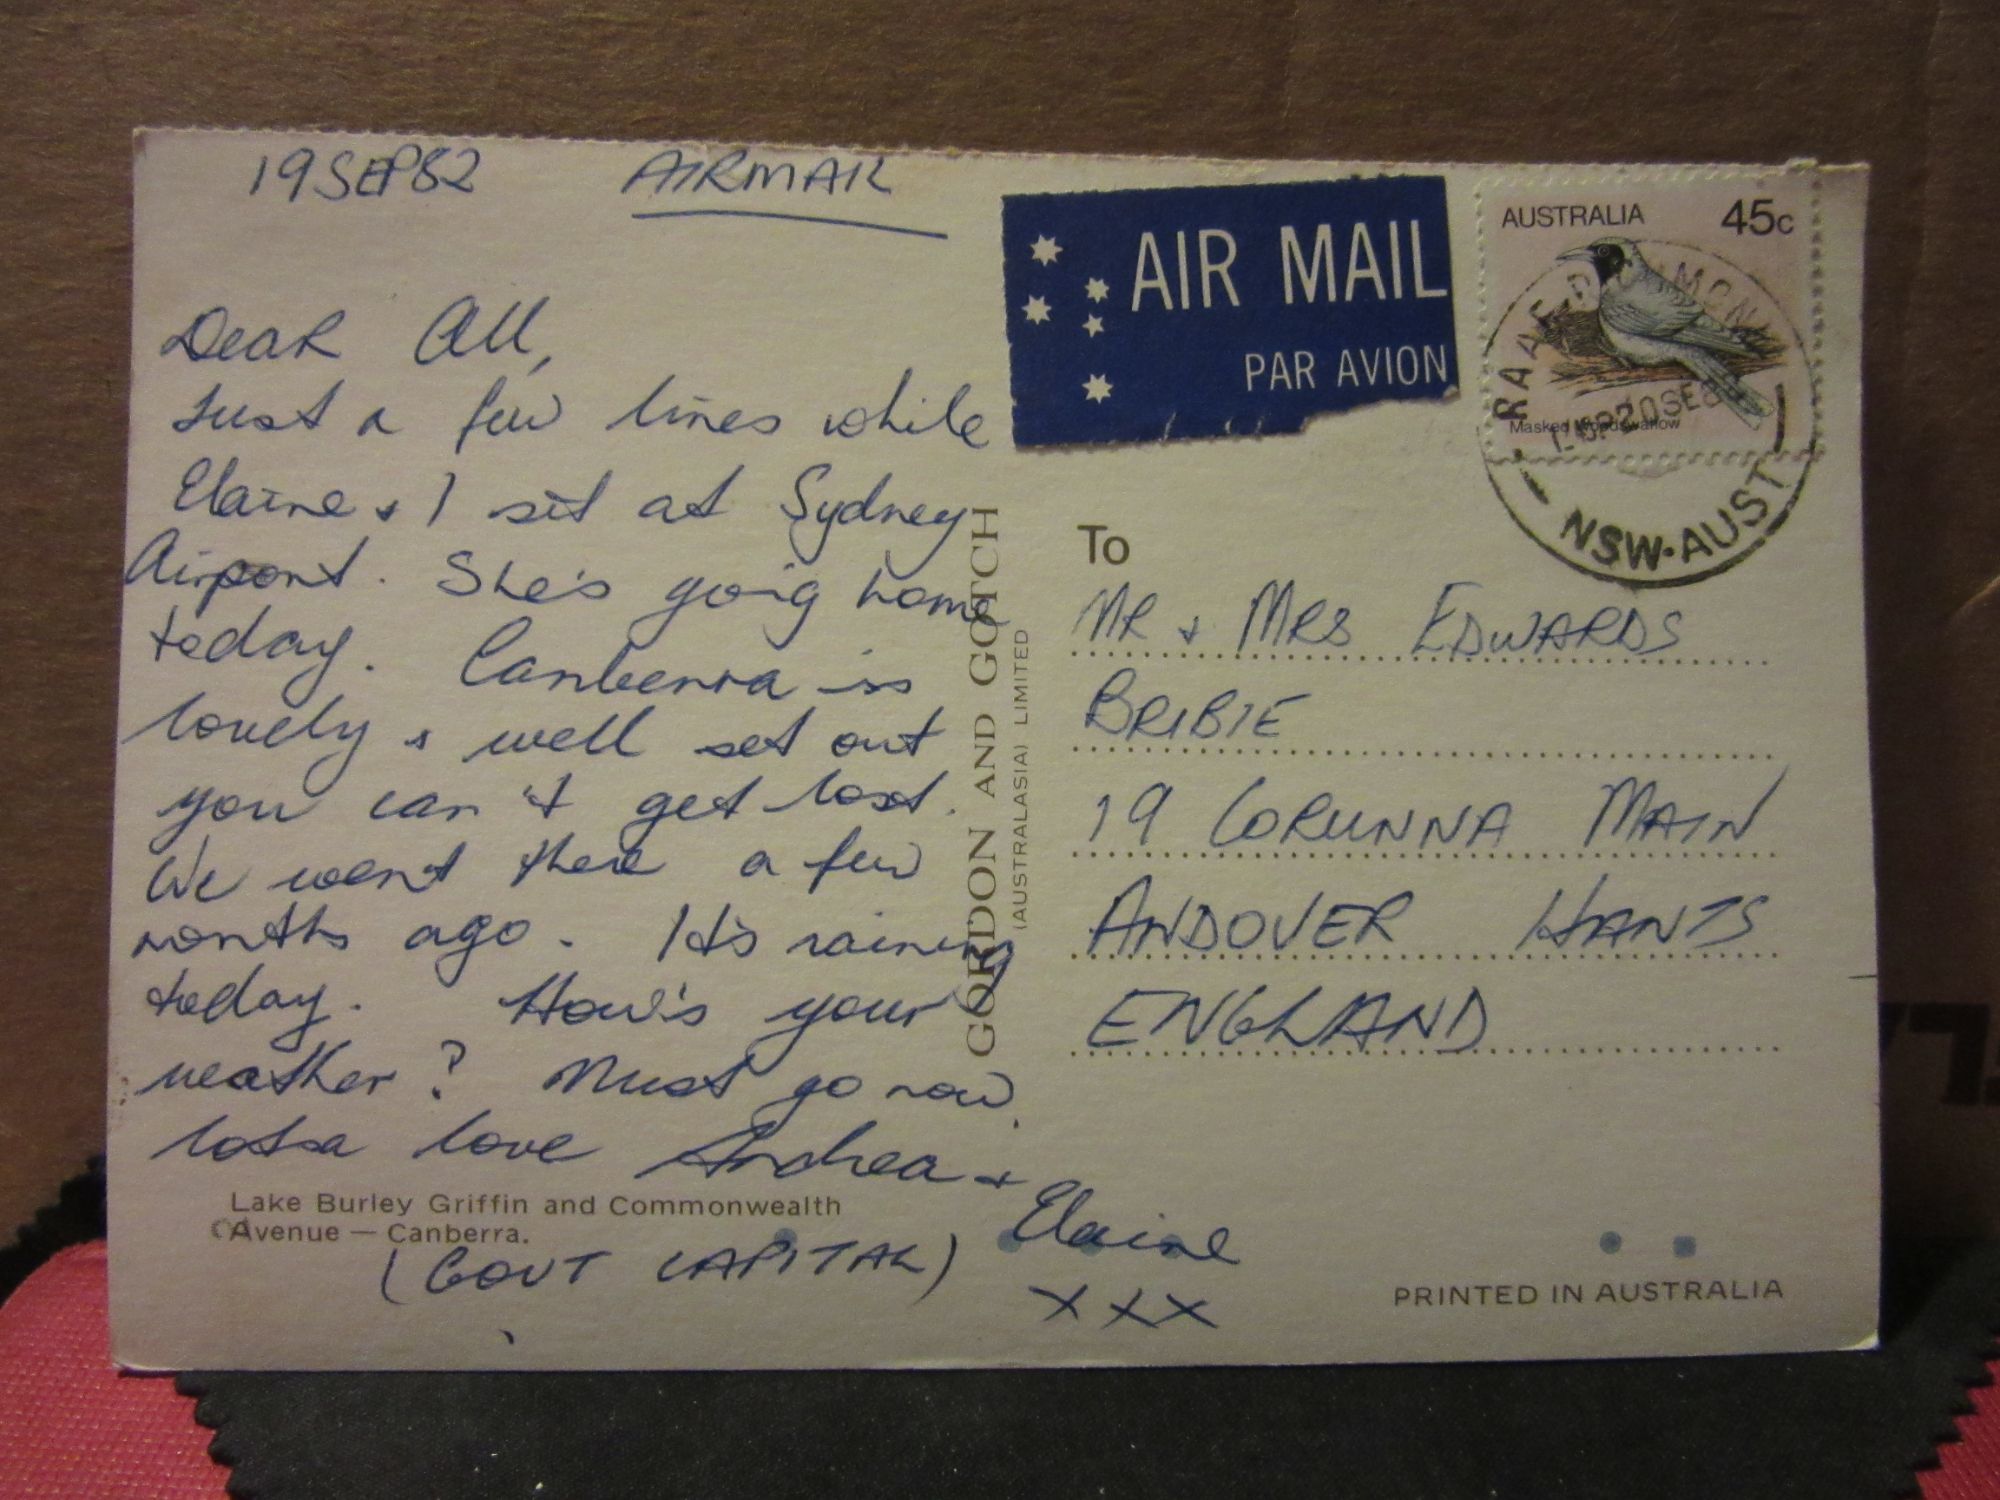 19 SEP 82 AIRMAIL
Dear All,
Just a few lines while
Elaine & I sit at Sydney
Airport. She's going home
today. Canberra is
lovely & well set out
you can't get lost.
We went there a few
months ago. It's raining
today. How's your
weather? Must go now.
Lotsa love Andrea &
Elaine
xxx
Lake Burley Griffin and Commonwealth
Avenue — Canberra.
(GOVT CAPITAL)
GORDON AND GOTCH
(AUSTRALASIA) LIMITED
AIR MAIL
PAR AVION
AUSTRALIA 45c
Masked Woodswallow
RAAF
20SE8
NSW·AUST
To
MR & MRS EDWARDS
BRIBIE
19 CORUNNA MAIN
ANDOVER HANTS
ENGLAND
PRINTED IN AUSTRALIA